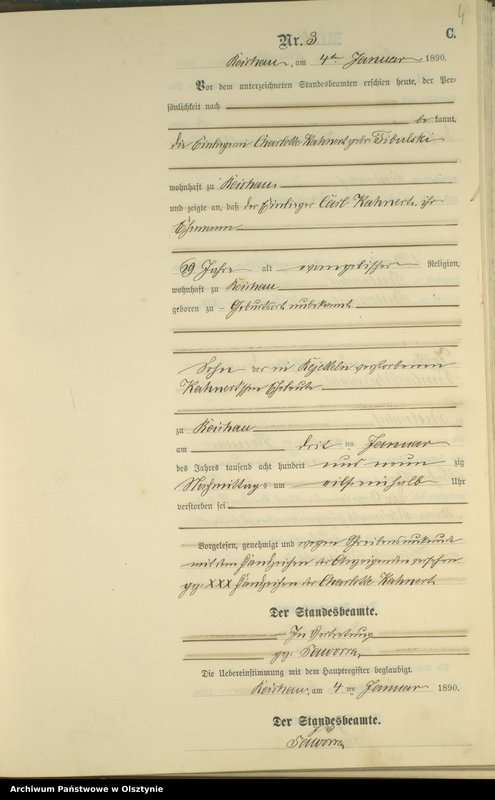 4
C.
Nr. 3
Reichau, am 4ten Januar 1890.
Vor dem unterzeichneten Standesbeamten erschien heute, der Per-
sönlichkeit nach
be kannt,
die Einliegerin Charlotte Kahnert geb. Tibulski
wohnhaft zu Reichau
und zeigte an, daß der Einlieger Carl Kahnert, ihr
Ehemann
69 Jahre alt evangelischer Religion,
wohnhaft zu Reichau
geboren zu Geburtsort unbekannt
Sohn der in verstorbenen
Kahnertschen Eheleute
zu Reichau
am drit ten Januar
des Jahres tausend acht hundert und neun zig
Nachmittags um Uhr
verstorben sei
Vorgelesen, genehmigt und wegen Schreibensunkunde
mit dem Handzeichen der Anzeigenden versehen
gez. XXX Handzeichen der Charlotte Kahnert.
Der Standesbeamte.
In Vertretung
gez. Saworra,
Die Uebereinstimmung mit dem Hauptregister beglaubigt.
Reichau, am 4 ten Januar 1890.
Der Standesbeamte.
Saworra,
Archiwum Państwowe w Olsztynie